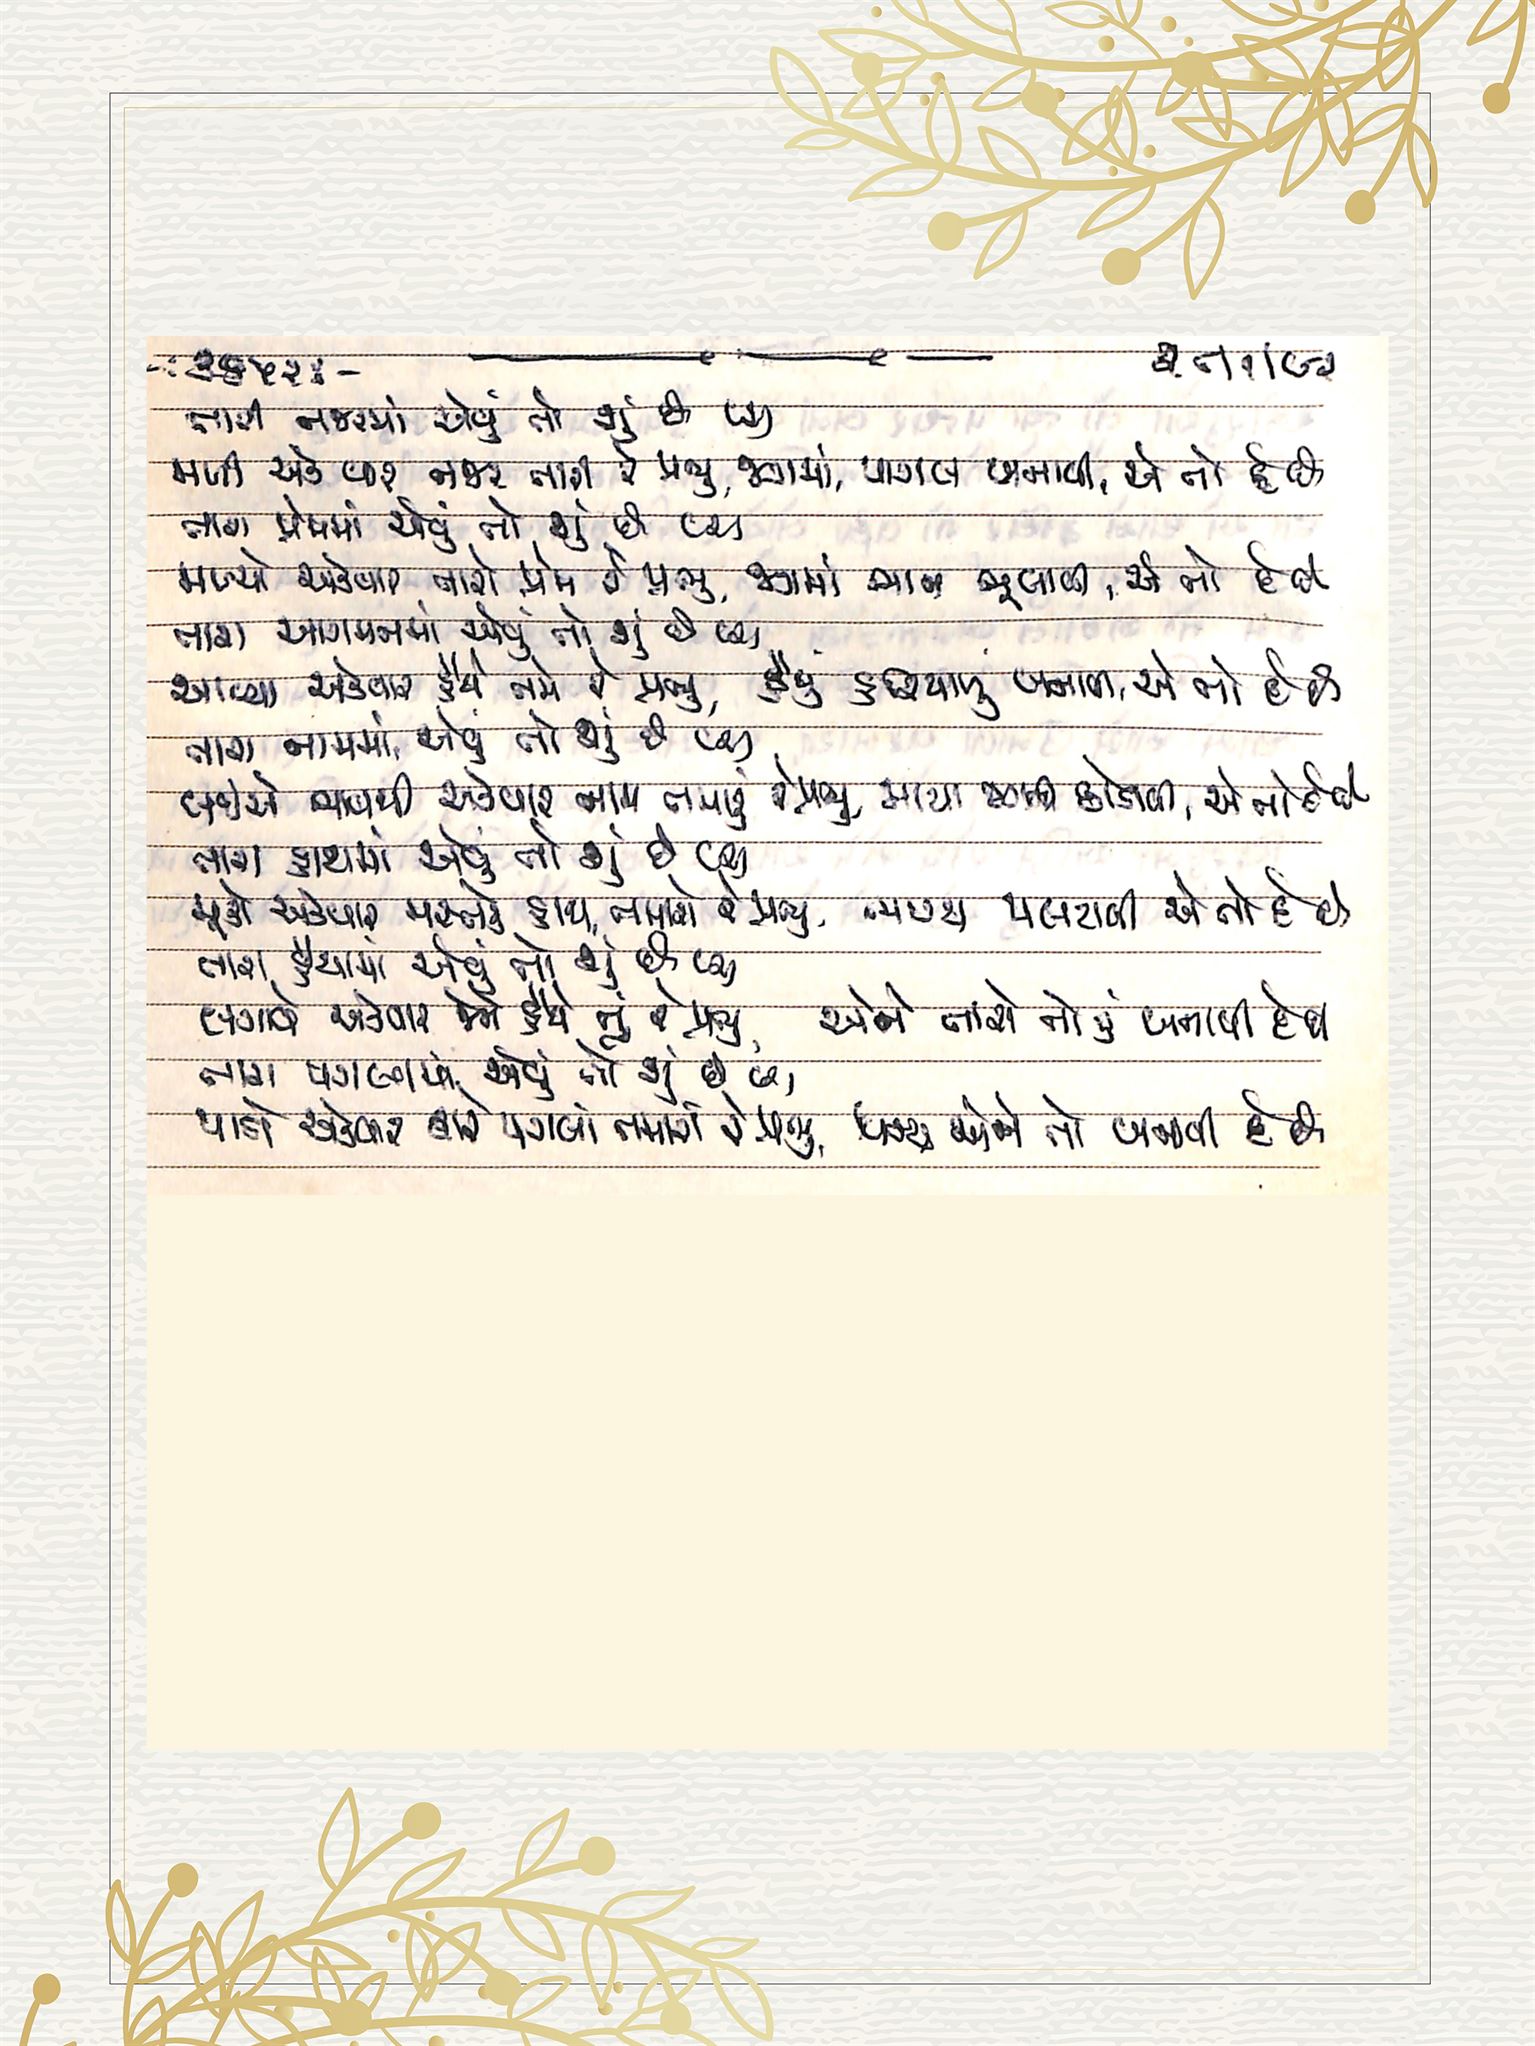 -: ૩૬૫૨ :-
તારી નજરમાં એવું તો શું છે
મળી એકવાર નજર તારી રે પ્રભુ, જગમાં, પાગલ બનાવી, એ તો દે છે
તારા પ્રેમમાં એવું તો શું છે
મળ્યો એકવાર તારો પ્રેમ રે પ્રભુ, જગમાં ભાન ભૂલાવી, એ તો દે છે
તારા આગમનમાં એવું તો શું છે
આવ્યા એકવાર હૈયે તમે રે પ્રભુ, હૈયું હરિયાળું બનાવી, એ તો દે છે
તારા નામમાં, એવું તો શું છે
લઈએ ભાવથી એકવાર નામ તમારું રે પ્રભુ, માયા જગની છોડાવી, એ તો દે છે
તારા હાથમાં એવું તો શું છે
મૂકો એકવાર મસ્તકે હાથ, તમારો રે પ્રભુ, ભાગ્ય પલટાવી એ તો દે છે
તારા હૈયામાં એવું તો શું છે
લગાવે એકવાર જેને હૈયે તું રે પ્રભુ, એને તારો તો તું બનાવી દે છે
તારા પગલામાં, એવું તો શું છે
પાડો એકવાર પગલાં તમારાં રે પ્રભુ, એને તો બનાવી દે છે